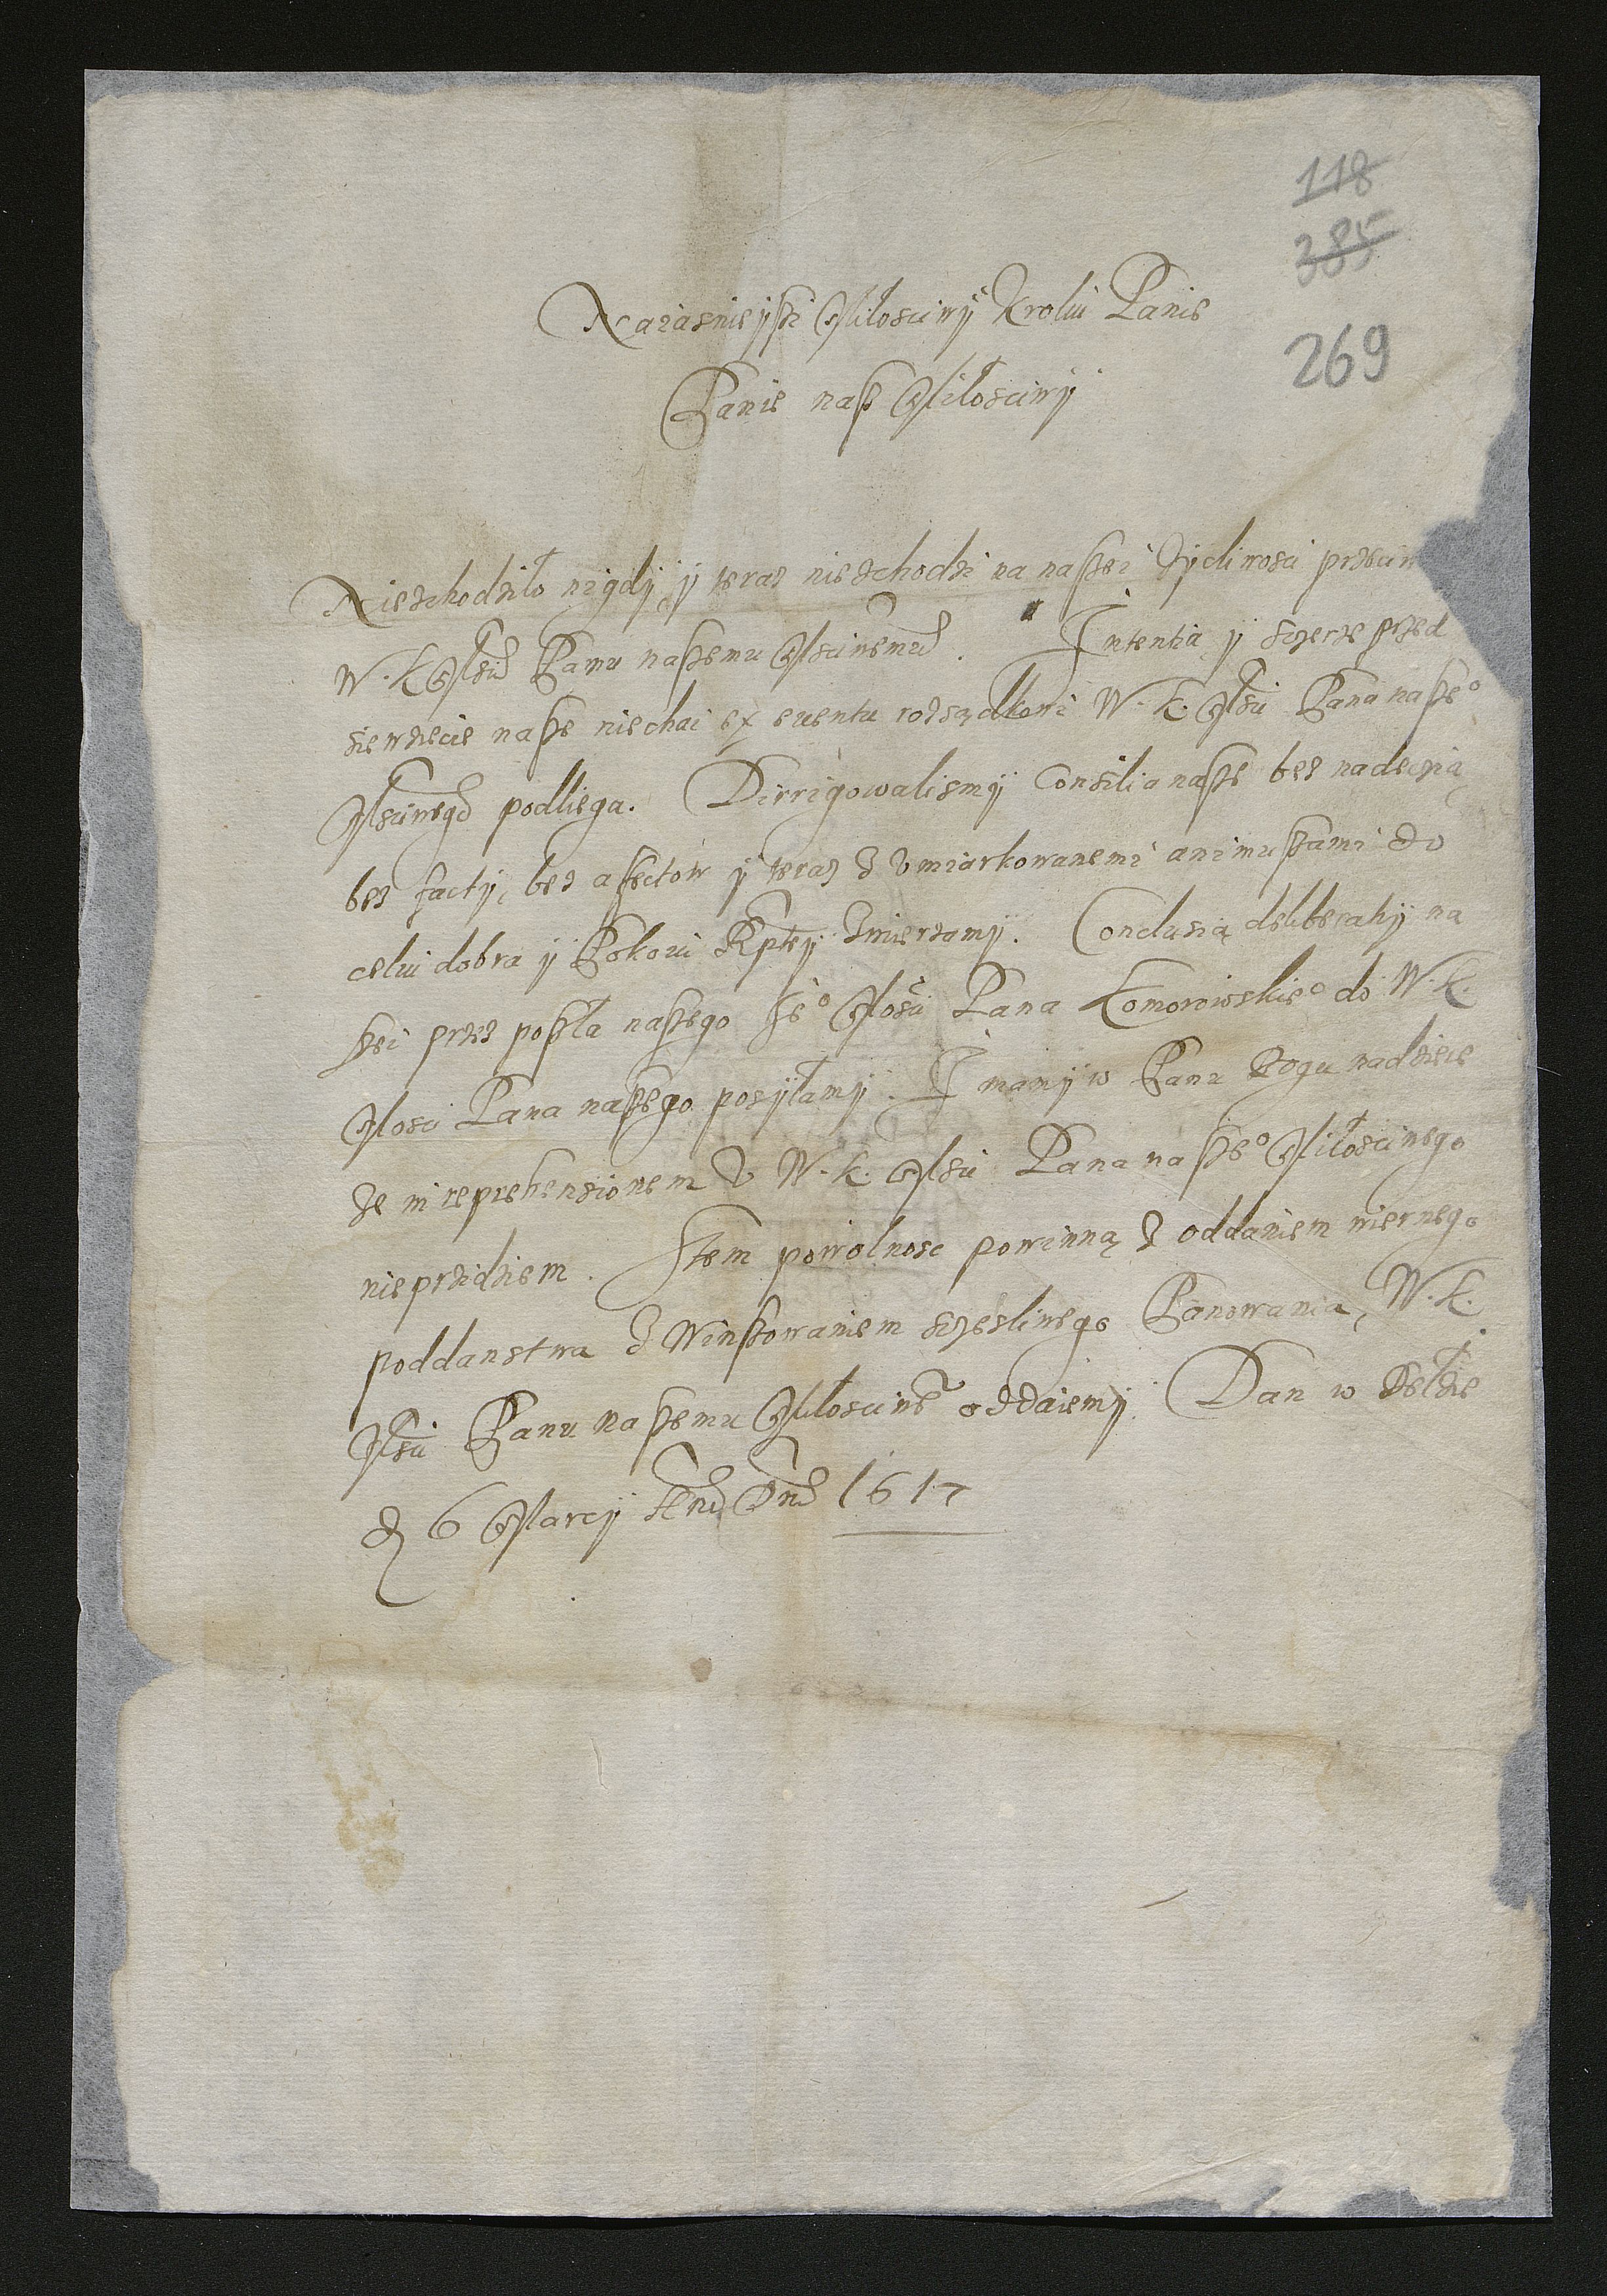 118
385
269
Naiasnieyszi Miłosciwy Krolu Panie
Panie nasz Miłosciwy
Nieschodziło nigdy, y teraz nieschodzi na naszei życliwosci przeciw
W. K. Msci Panu naszemu Msciwemu. Intentia y szczerze przed
siewziecie nasze niechai ex euentu rozsądkowi W. K. Msci Pana nasze⁰
Msciwego podliega. Dirrigowalismy Consilia nasze bez
bez facty, bez afectow y teraz z vmiarkowanemi animuszami do
celu dobra y Pokoiu Rptey zmierzamy. Conclusią deliberatij na
szei przez poszła naszego Je⁰ Mosci Pana Komorowskie⁰ do W. K.
Mosci Pana naszego posyłamy. I mamy w Panu Bogu nadzieie
ze in reprehensionem v W. K. Msci Pana nasze⁰ Miłosciwego
nieprzidziem. Ztem powolnosc powinną z oddaniem wiernego
poddanstwa z Winszowaniem sczesliwego Panowania, W. K.
Msci Panu naszemu Miłosciwe oddaiemy. Dan w Bełzie
D 6 Marcij Ann Dni 1617